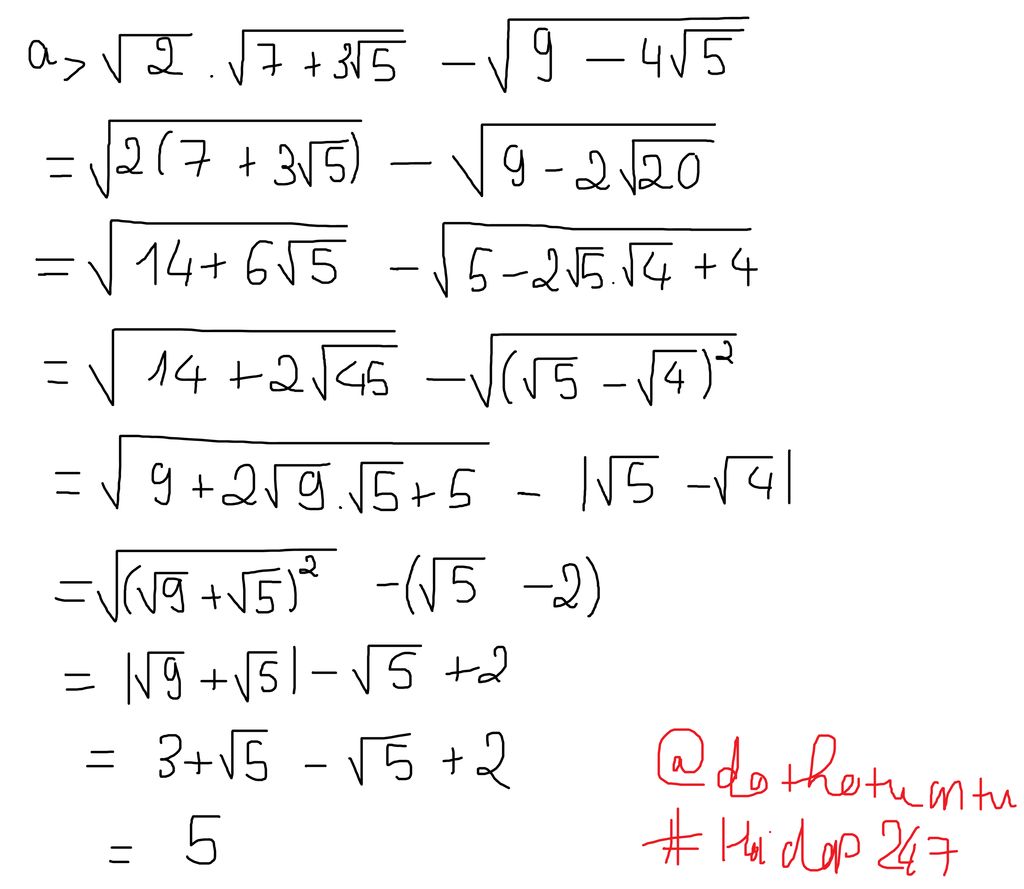 a> √2 . √(7 + 3√5) - √(9 - 4√5)
= √(2(7 + 3√5)) - √(9 - 2√20)
= √(14 + 6√5) - √(5 - 2√5.√4 + 4)
= √(14 + 2√45) - √((√5 - √4)²)
= √(9 + 2√9.√5 + 5) - |√5 - √4|
= √((√9 + √5)²) - (√5 - 2)
= |√9 + √5| - √5 + 2
= 3 + √5 - √5 + 2
= 5
# Hoidap247